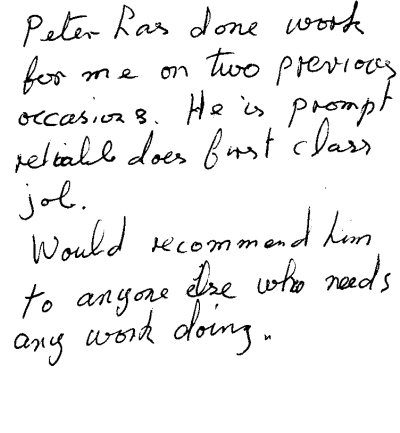 Peter has done work
for me on two previous
occasions. He is prompt
reliable does first class
job.
Would recommend him
to anyone else who needs
any work doing.